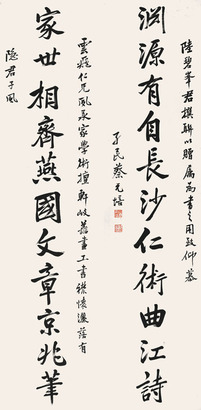 陸碧峯君撰聯以贈屬為書之用致仰慕
淵源有自長沙仁術曲江詩
孑民蔡元培
雲瘦仁兄風長家學術擅軒岐舊畫工書襟懷瀟蕩有
家世相齊燕國文章京兆筆
隱君子風